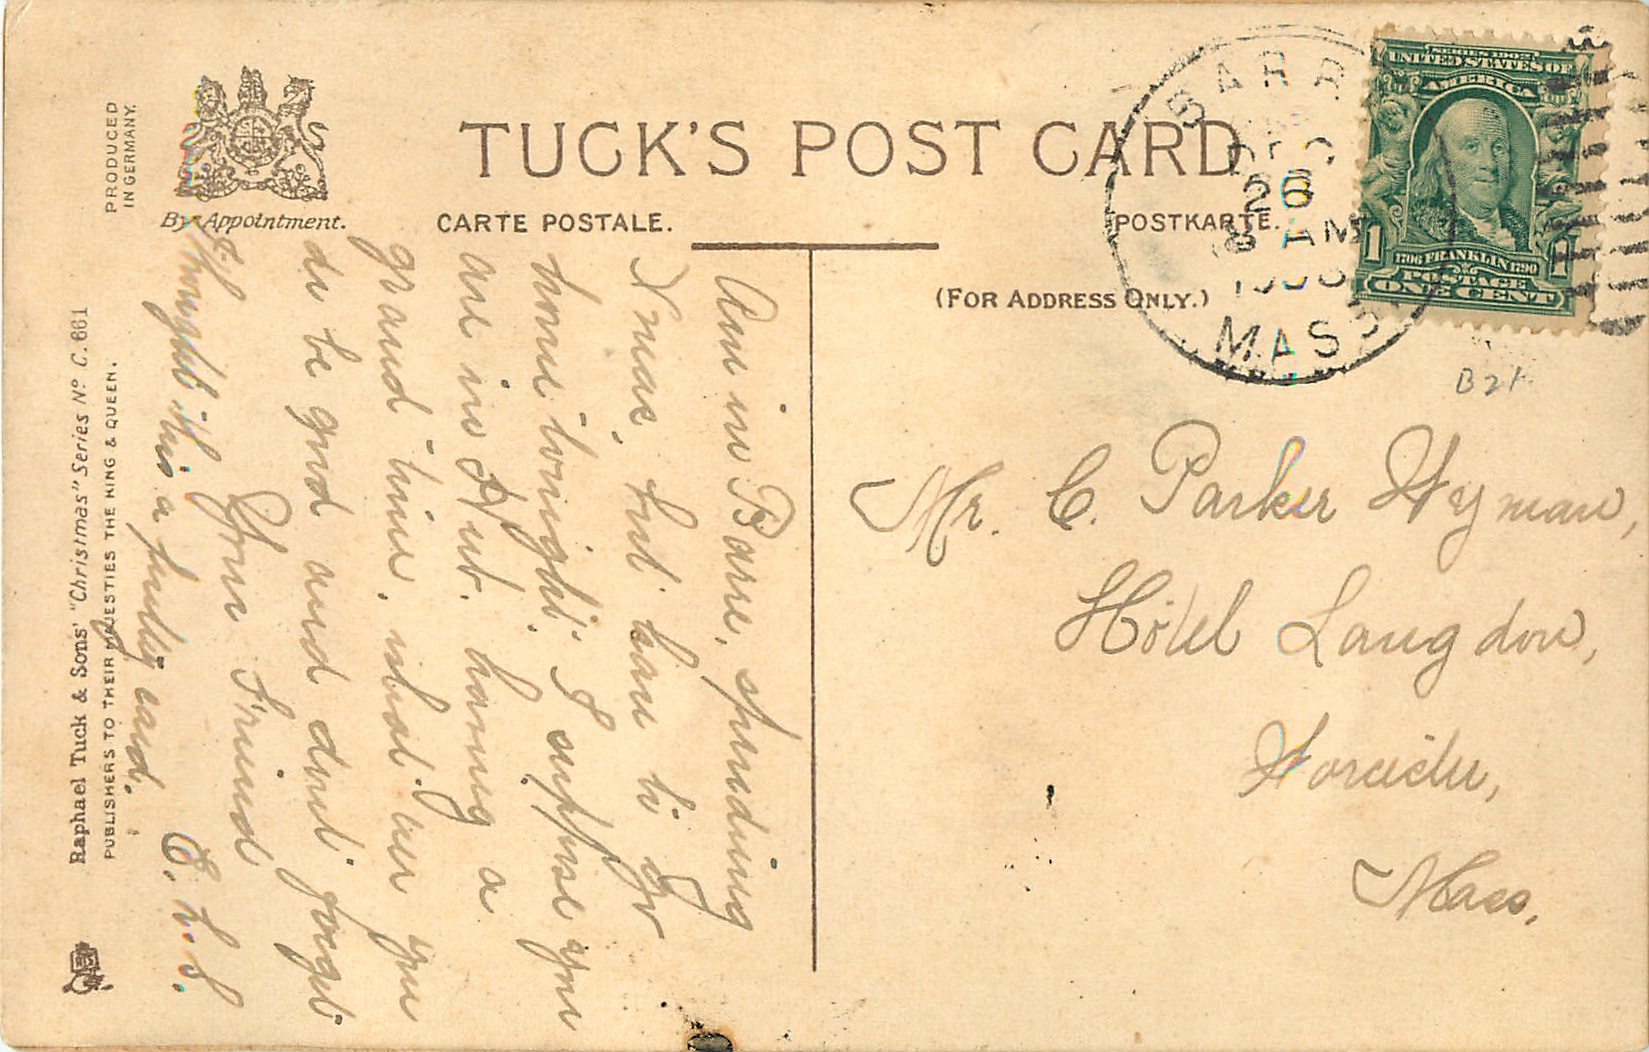 PRODUCED
IN GERMANY.
By Appointment.
TUCK'S POST CARD
CARTE POSTALE.
POSTKARTE.
(FOR ADDRESS ONLY.)
BARR
DEC
26
8 AM
MASS
SERIES 1902
UNITED STATES OF
AMERICA
1 1
1706 FRANKLIN 1790
POSTAGE
ONE CENT
B21
Mr. C. Parker Wyman,
Hotel Langdon,
Worcester,
Mass.
Am in Barre, spending
Xmas, but have to go
home tonight. I suppose you
are in Hub. having a
grand time. what are you
do be good and dont forget
Your Friend
E. L. S.
Thought this a pretty card.
Raphael Tuck & Sons' "Christmas" Series No C. 661
PUBLISHERS TO THEIR MAJESTIES THE KING & QUEEN.